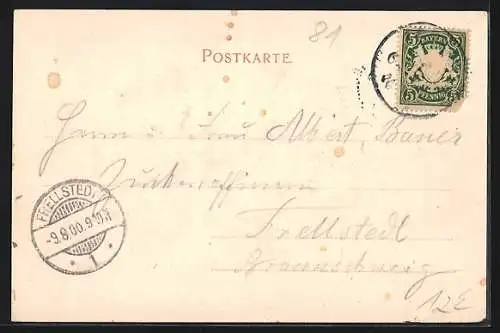 81
POSTKARTE.
BAYERN
5 5
5 PFENNIG 5
Herrn u. Frau Albert Bauer
Zuckerraffinerie
Frellstedt
Braunschweig
FRELLSTEDT
-9.8.00.9-10V.
* 1 *
12E